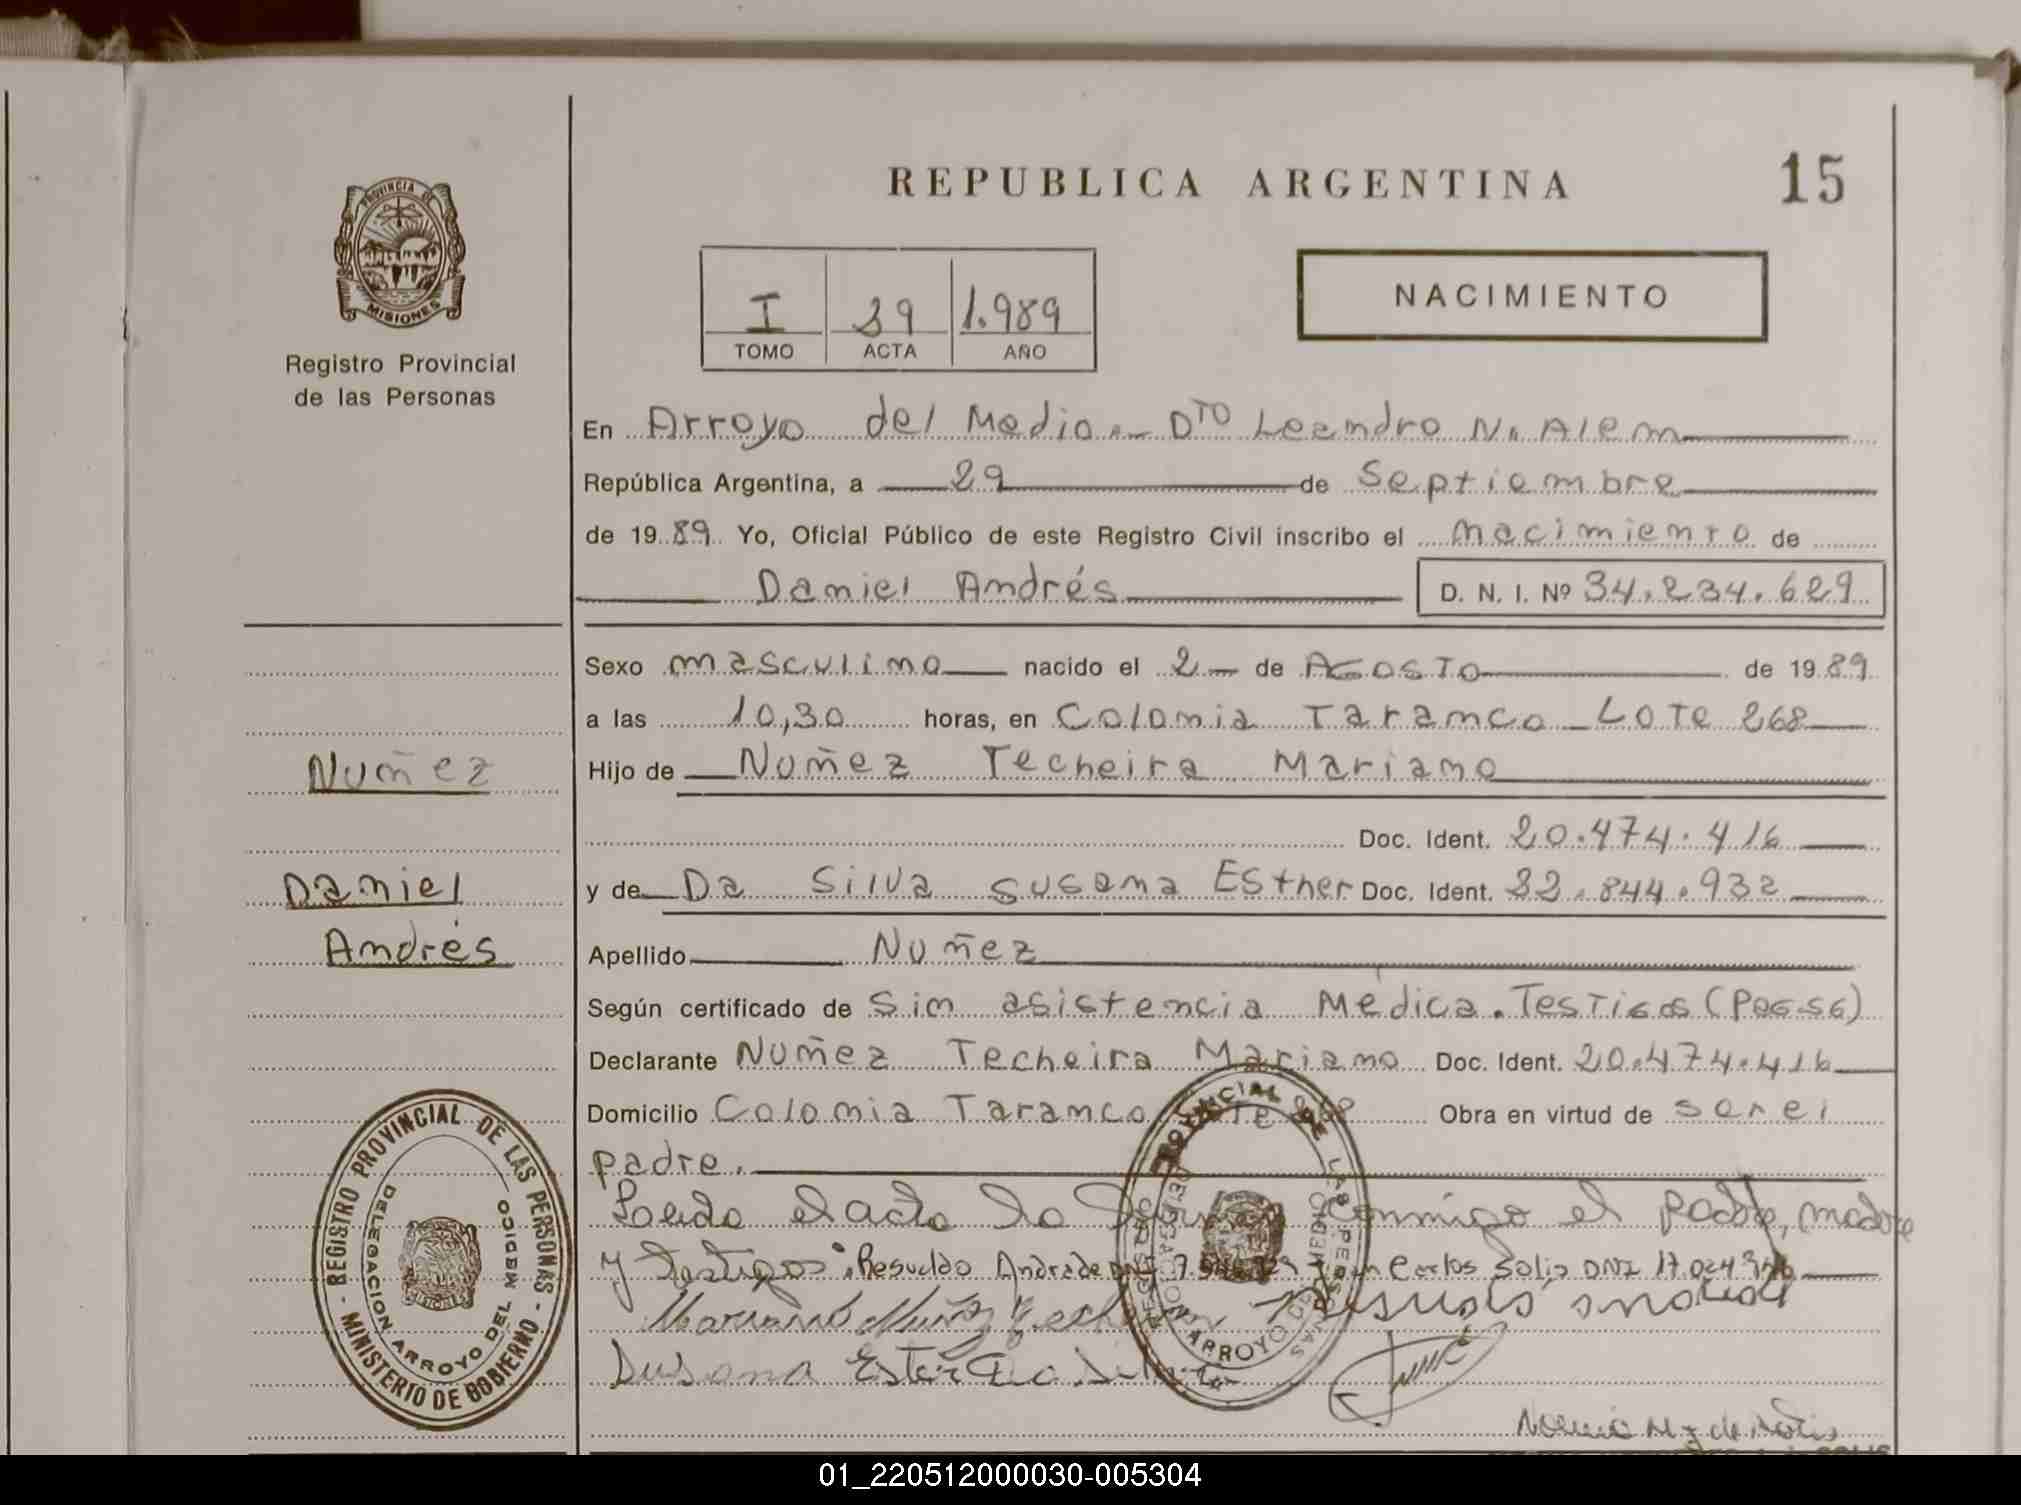 REPUBLICA ARGENTINA
15
PROVINCIA DE
MISIONES
Registro Provincial
de las Personas
I 39 1.989
TOMO ACTA AÑO
NACIMIENTO
En Arroyo del Medio.- Dto Leandro N. Alem
República Argentina, a 29 de Septiembre
de 1989 Yo, Oficial Público de este Registro Civil inscribo el nacimiento de
Daniel Andrés D. N. I. Nº 34.234.629
Sexo masculino nacido el 2 de Agosto de 1989
a las 10,30 horas, en Colonia Taranco Lote 268
Nuñez
Hijo de Nuñez Techeira Mariano
Doc. Ident. 20.474.416
Daniel
y de Da Silva Susana Esther Doc. Ident. 32.844.932
Andrés
Apellido Nuñez
Según certificado de Sin asistencia Médica. Testigos (Pag-56)
Declarante Nuñez Techeira Mariano Doc. Ident. 20.474.416
Domicilio Colonia Taranco Lote 268 Obra en virtud de ser el
padre.
Leido el acta la firman conmigo el padre, madre
y testigos: Resuldo Andrade DNI Juan Carlos Solis DNI 17.024
Mariano Nuñez Techeira
Susana Ester Da Silva
REGISTRO PROVINCIAL DE LAS PERSONAS
- MINISTERIO DE GOBIERNO -
DELEGACION ARROYO DEL MEDIO
PROVINCIAL DE LAS PERSONAS
DELEGACION ARROYO DEL MEDIO
01_220512000030-005304